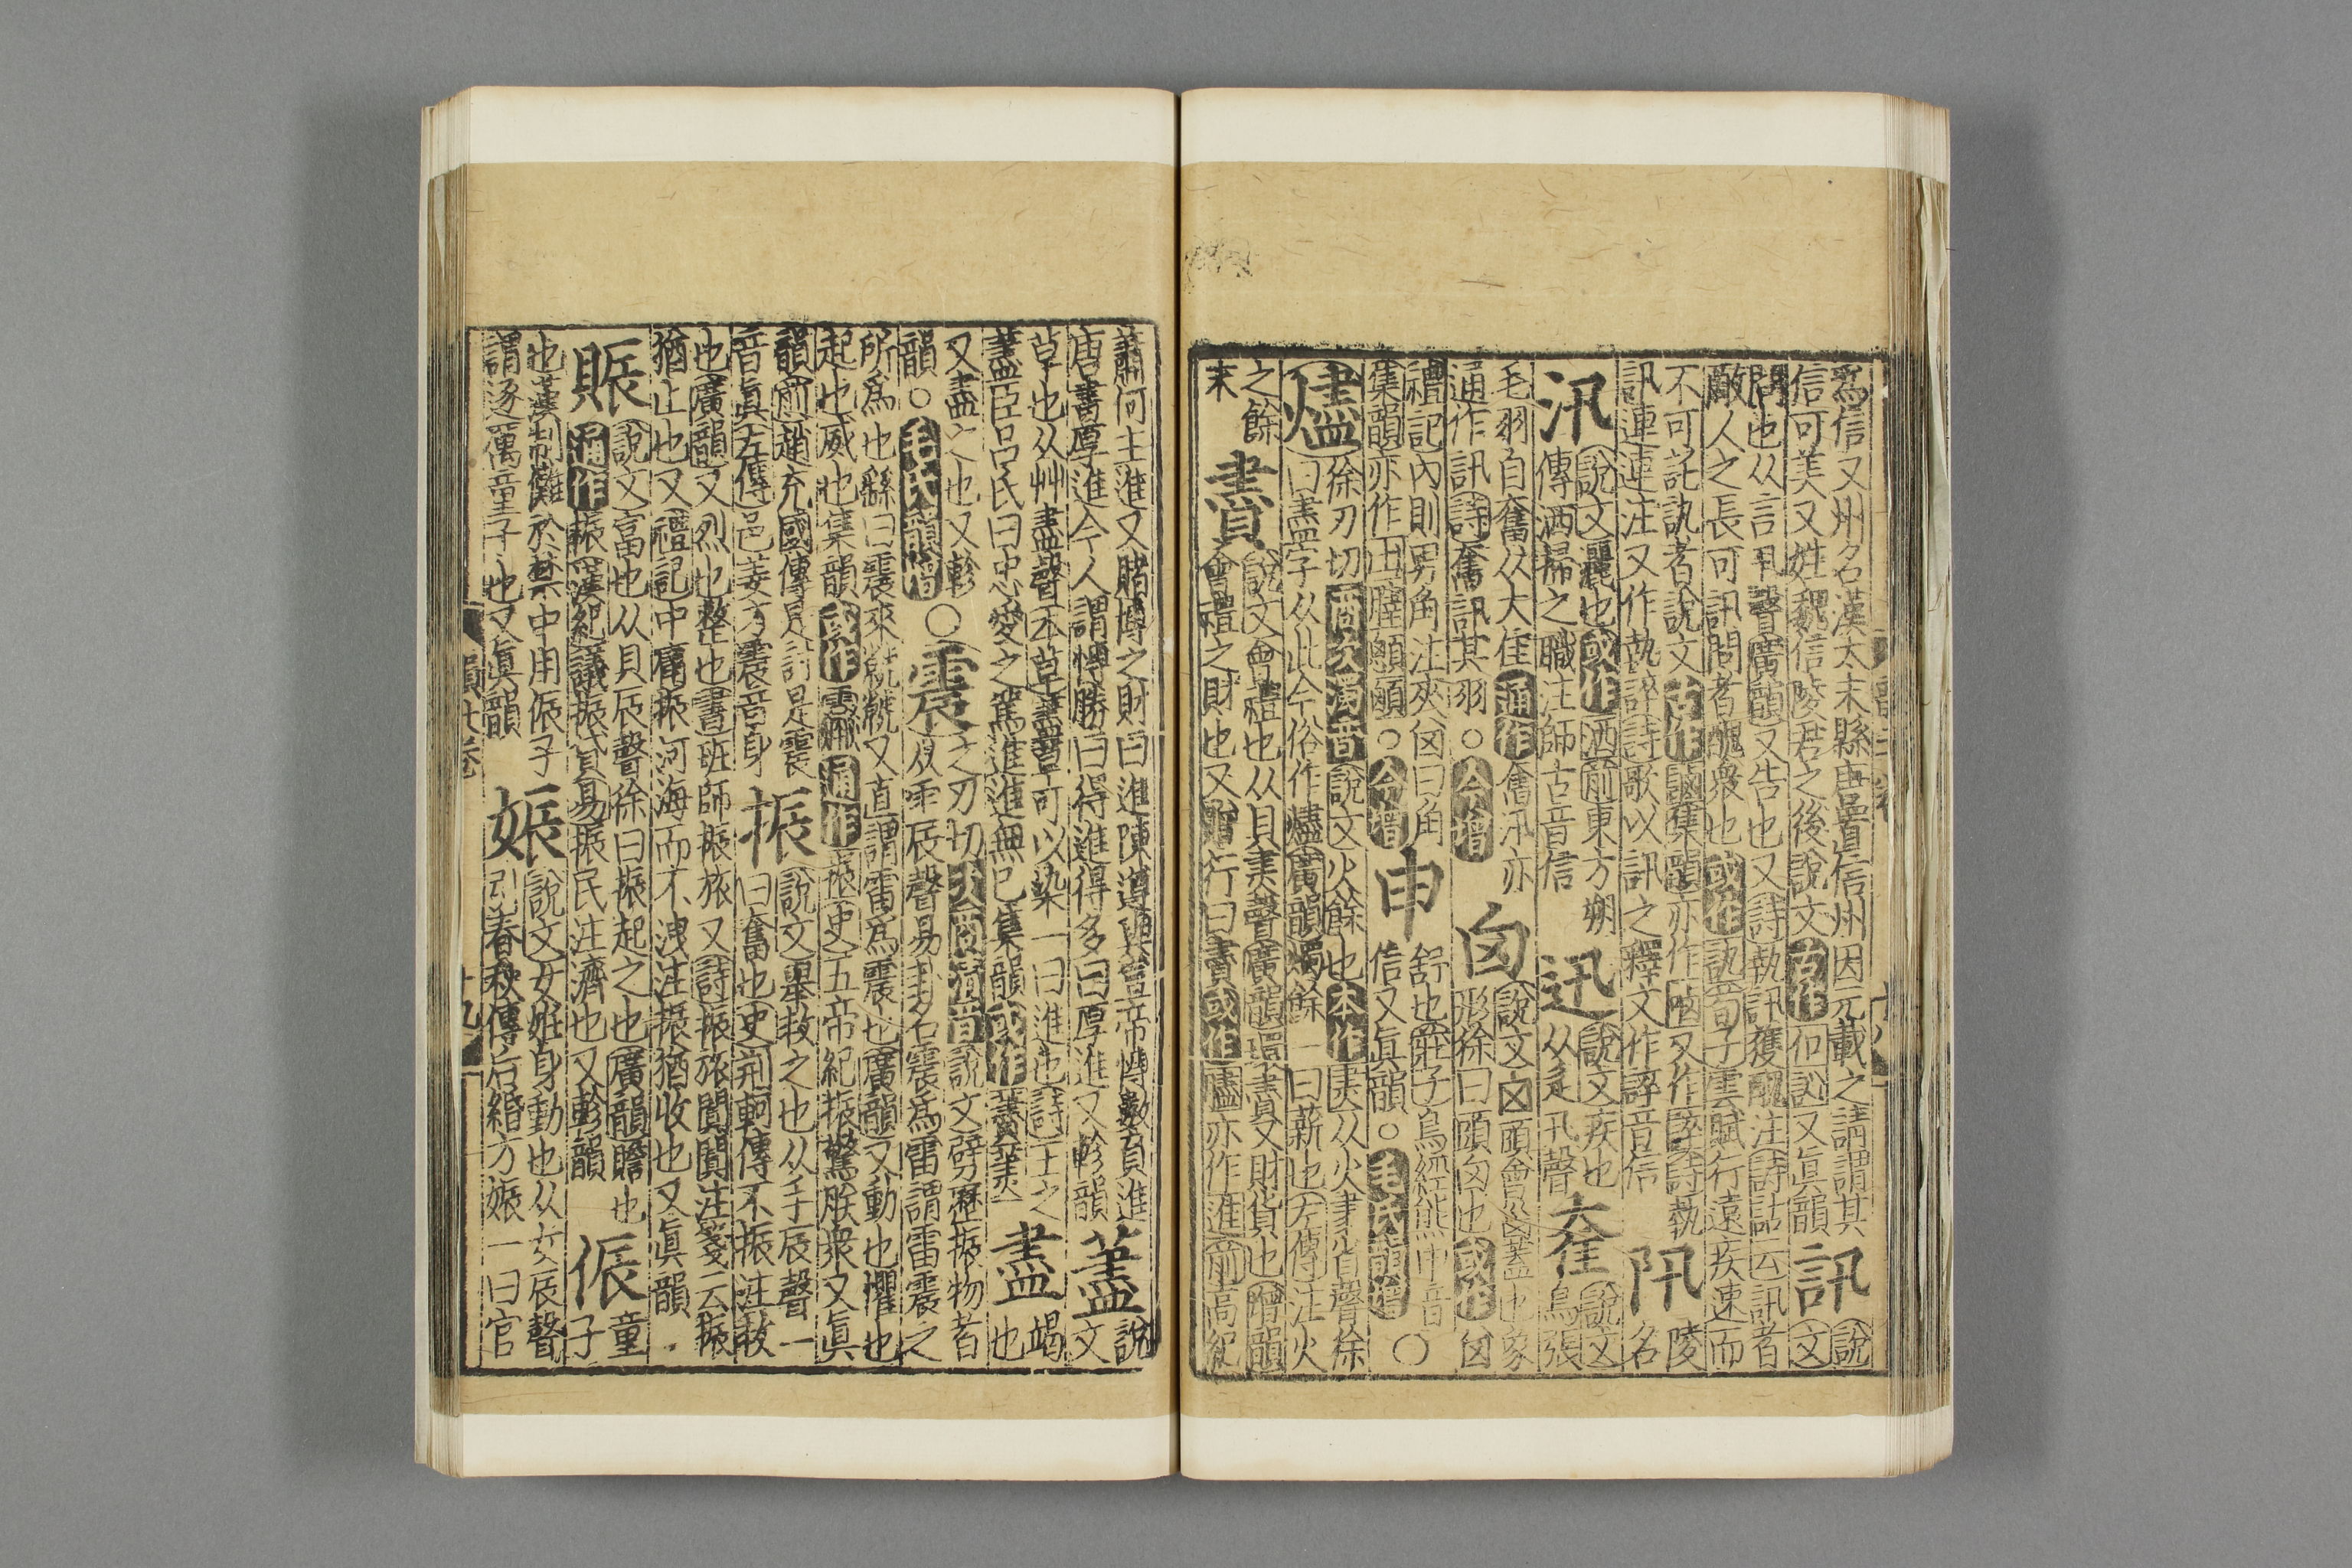 爲信又州名漢太末縣唐置信州因元載之請謂其
信可美又姓魏信陵君之後說文古作㐰訫又眞韻訊說
問也从言卂聲廣韻又告也又詩執訊獲醜注詩詁云訊者文
敵人之長可訊問者醜衆也或作訙荀子雲賦行遠疾速而
不可託訙者說文古作𧩶集韻亦作㖧又作誶詩執
訊連連注又作誶詩歌以訊之釋文作誶音信阠陵名
汛說文灑也或作洒前東方朔
傳洒掃之職注師古音信迅說文疾也
从辵卂聲奞說文鳥張
毛羽自奮从大隹通作會汛亦
通作訊詩奮訊其羽○今增囟說文囟頭會匘蓋也象
形徐曰頭囟也或作囟
禮記內則男角注夾囟曰角
集韻亦作𦞤顖○今增申舒也莊子鳥經熊申音
信又眞韻○毛氏韻增○
燼徐刃切商次濁音說文火餘也本作㶳从火聿省聲徐
曰㶳字从此今俗作燼廣韻燭餘一曰薪也左傳注火
之餘
末賮說文會禮也从貝㶳聲廣韻賮又財貨也增韻
會禮之財也又贈行曰賮或作贐亦作進前高紀
蕭何主進又賭博之財曰進陳遵傳宣帝慱數負進
唐書厚進今人謂慱勝曰得進得多曰厚進又軫韻藎說文
草也从艸盡聲本草藎草可以染一曰進也詩王之
藎臣呂氏曰忠愛之篤進進無已集韻或作盡竭也
又盡之也又軫
韻○毛氏韻增○震之刃切次商清音說文劈歷振物者
从雨辰聲易卦名震爲雷謂雷震之
所爲也繇曰震來虩虩又直謂雷爲震也廣韻又動也懼也
起也威也集韻或作通作振史五帝紀振驚朕衆又眞
韻前趙充國傳是討是震
音眞左傳邑姜方震音身振說文舉救之也从手辰聲一
曰奮也史荊軻傳不振注救
也廣韻又烈也整也書班師振旅又詩振旅闐闐注箋云振
猶止也又禮記中庸振河海而不洩注振猶收也又眞韻
賑說文富也从貝辰聲徐曰振起之也廣韻贍也
通作振漢紀議振貸易振民注濟也又軫韻侲童子
也漢制儺於禁中用侲子
謂逐厲童子也又眞韻娠說文女妊身動也从女辰聲
引春秋傳后緡方娠一曰官